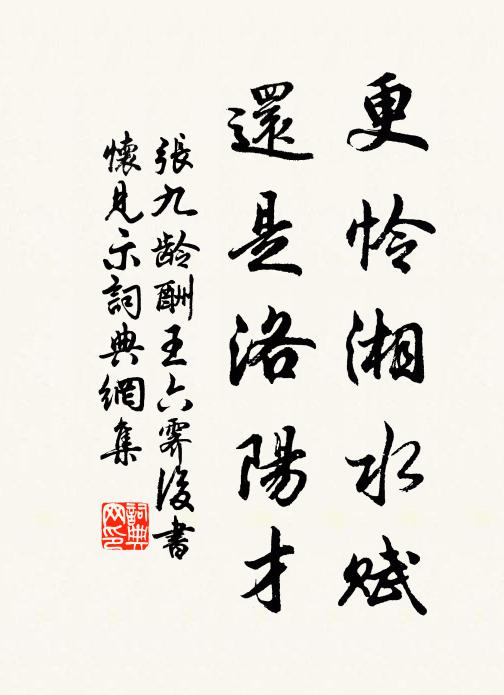 更怜湘水赋
還是洛陽才
張九龄酬王六霽後書
懷見示詞典網集
詞典
网印